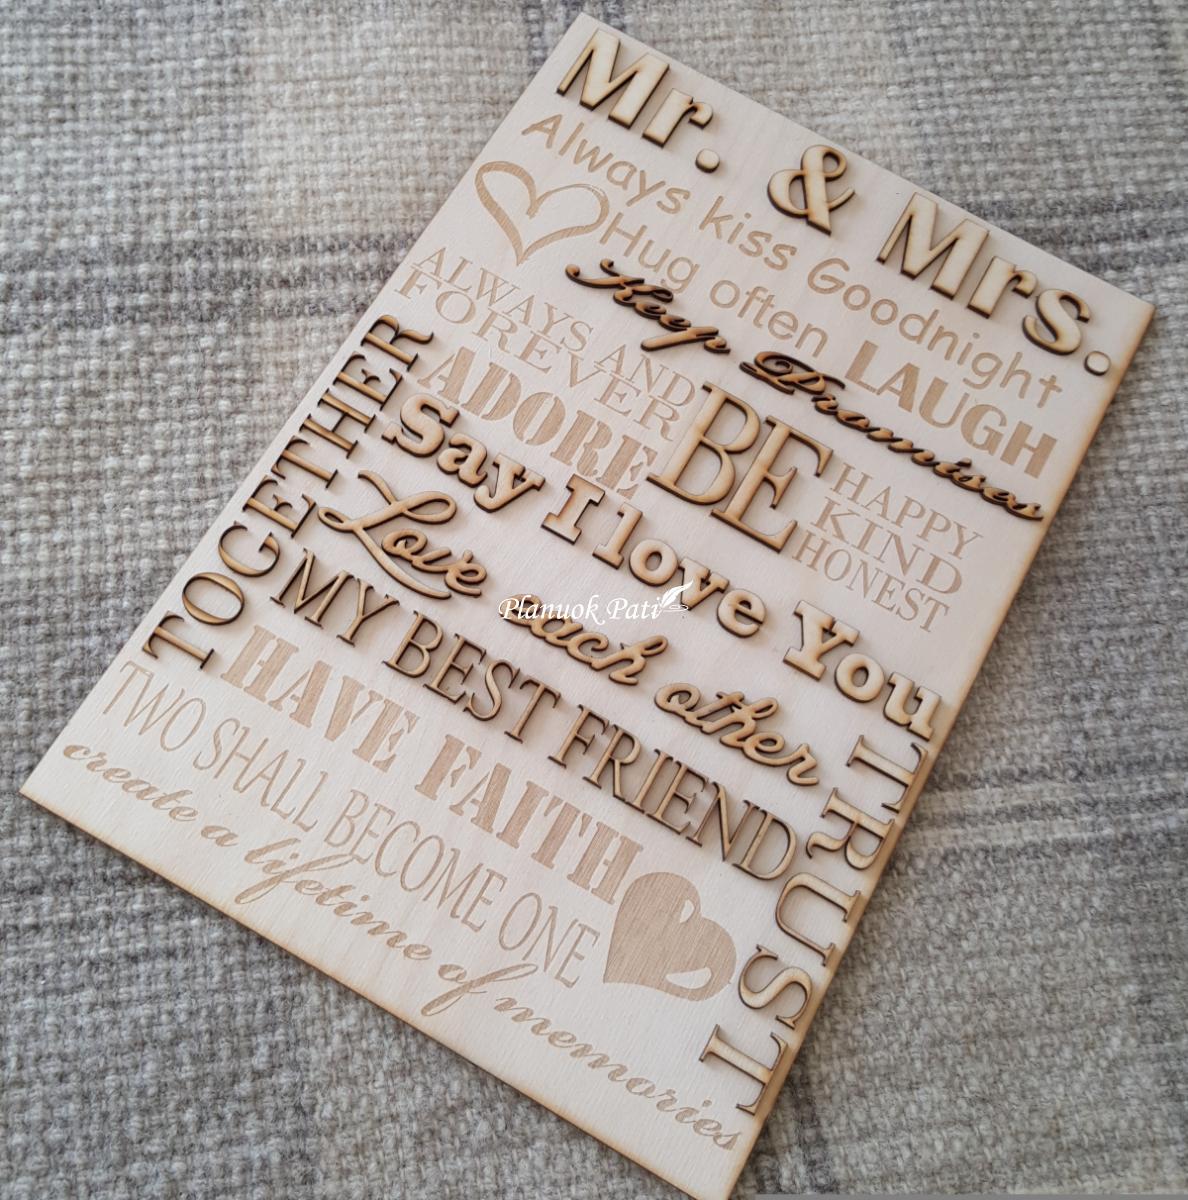 Mr. & Mrs.
Always kiss Goodnight
Hug often LAUGH
Keep Promises
ALWAYS AND
FOREVER
ADORE
BE
HAPPY
KIND
HONEST
TOGETHER
Say I love You
Love each other
MY BEST FRIEND
TRUST
HAVE FAITH
TWO SHALL BECOME ONE
create a lifetime of memories
Planuok Pati